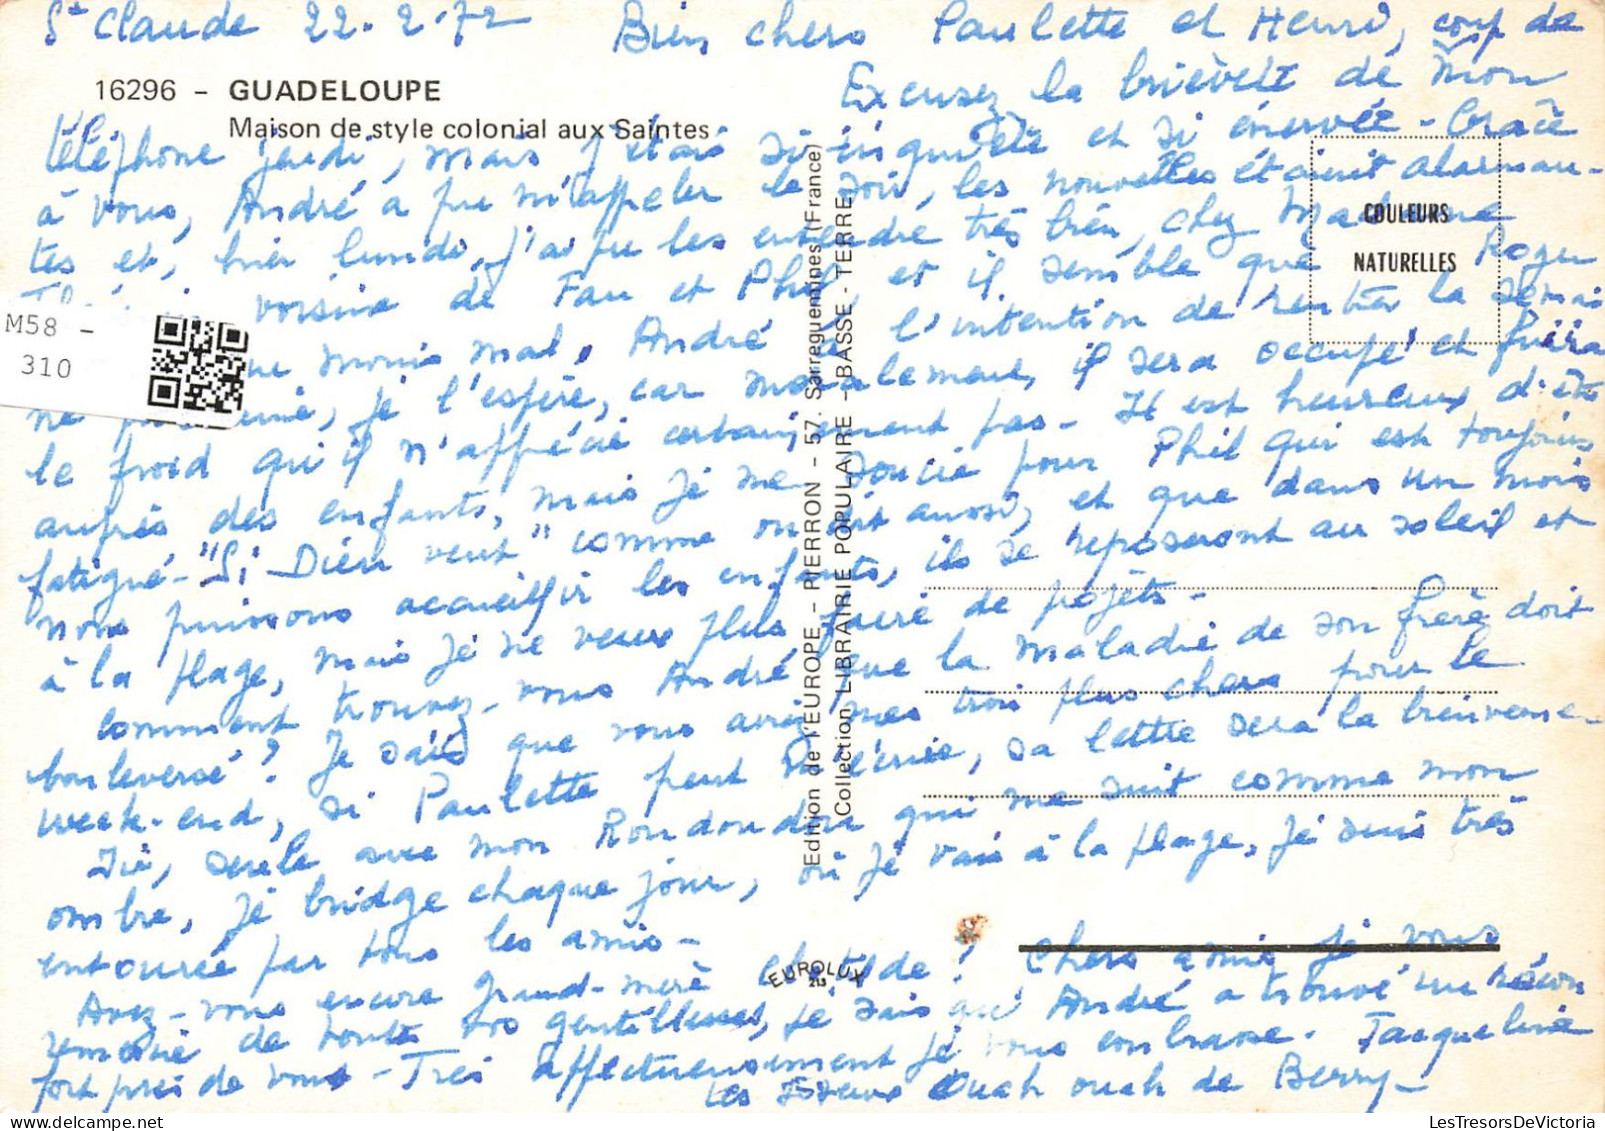 St Claude 22.2.72 Bien chers Paulette et Henri, coup de
16296 - GUADELOUPE
Maison de style colonial aux Saintes
Excusez la brièveté de mon
téléphone jeudi, mais j'étais si inquiète et si énervée - Grâce
à vous, André a pu m'appeler le soir, les nouvelles étaient alarman-
tes et, hier lundi, j'ai pu les entendre très bien, chez Madame
voisine de Fan et Phil, et il semble que Roger
moins mal, André a l'intention de rentrer la semai
ne prochaine, je l'espère, car moralement, il sera occupé et fuira
le froid qu'il n'apprécie certainement pas - Il est heureux d'être
auprès des enfants, mais je me soucie pour Phil qui est toujours
fatigué - "Si Dieu veut" comme on dit aussi, et que dans un mois
nous puissons accueillir les enfants, ils se reposeront au soleil et
à la plage, mais je ne veux plus faire de projets -
Comment trouvez-vous André que la maladie de son frère doit
bouleversé ? Je sais que vous aviez mes trois plus chers pour le
week-end, si Paulette peut m'écrire, sa lettre sera la bienvenue -
Ici, seule avec mon Roudoudou qui me suit comme mon
ombre, je bridge chaque jour, où je vais à la plage, je suis très
entourée par tous les amis -
Avez-vous encore grand-mère Clotilde ? Chers amis je vous
remercie de toutes vos gentillesses, je sais qu' André a trouvé un récon
fort près de vous - Très affectueusement je vous embrasse. Jacqueline
Les ouah ouah de Berry -
COULEURS
NATURELLES
Edition de l'EUROPE - PIERRON - 57. Sarreguemines (France)
Collection LIBRAIRIE POPULAIRE - BASSE - TERRE
EUROLUX
213
M58 -
310
LesTresorsDeVictoria.com